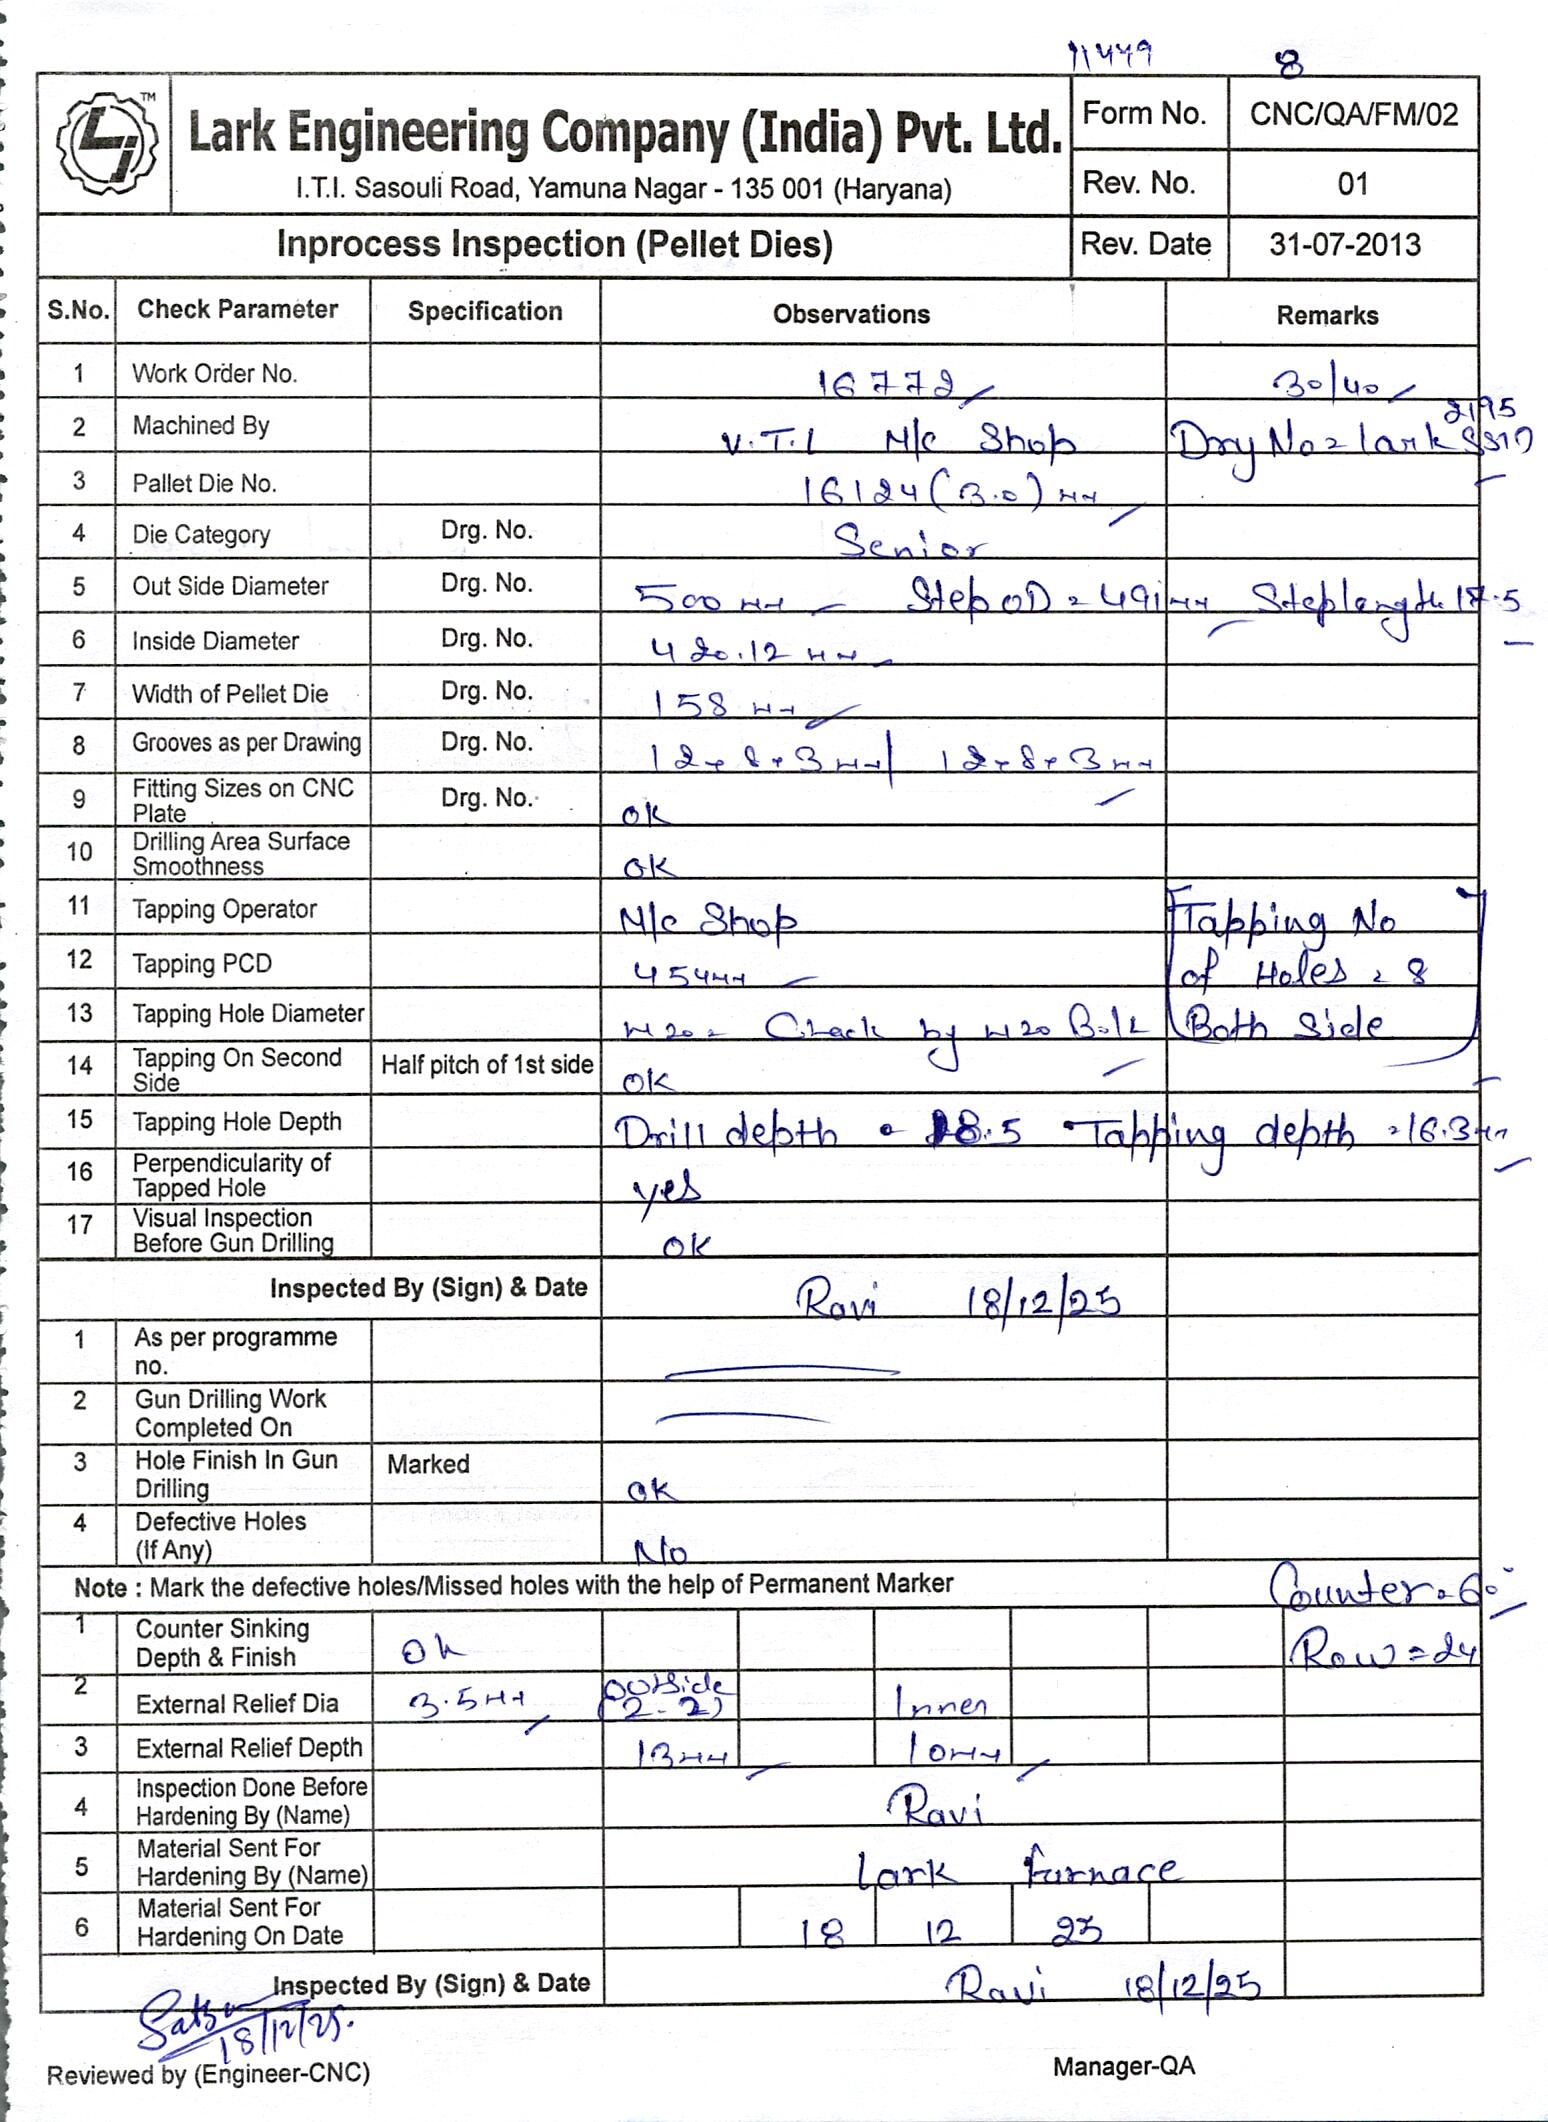 11449 8
TM
Lark Engineering Company (India) Pvt. Ltd.
I.T.I. Sasouli Road, Yamuna Nagar - 135 001 (Haryana)
Form No. CNC/QA/FM/02
Rev. No. 01
Inprocess Inspection (Pellet Dies) Rev. Date 31-07-2013
S.No. Check Parameter Specification Observations Remarks
1 Work Order No. 16772 30/40
2 Machined By V.T.L M/c Shop Drg No = Lark 2195
3 Pallet Die No. 16124 (3.0) mm
4 Die Category Drg. No. Senior
5 Out Side Diameter Drg. No. 500 mm Step OD = 491 mm Step length 17.5
6 Inside Diameter Drg. No. 420.12 mm
7 Width of Pellet Die Drg. No. 158 mm
8 Grooves as per Drawing Drg. No. 12×8×3 mm | 12×8×3 mm
9 Fitting Sizes on CNC Plate Drg. No. OK
10 Drilling Area Surface Smoothness OK
11 Tapping Operator M/c Shop Tapping No
12 Tapping PCD 454 mm of Holes = 8
13 Tapping Hole Diameter M20 = Check by M20 Bolt Both Side
14 Tapping On Second Side Half pitch of 1st side OK
15 Tapping Hole Depth Drill depth = 18.5 Tapping depth = 16.3 mm
16 Perpendicularity of Tapped Hole yes
17 Visual Inspection Before Gun Drilling OK
Inspected By (Sign) & Date Ravi 18/12/25
1 As per programme no.
2 Gun Drilling Work Completed On
3 Hole Finish In Gun Drilling Marked OK
4 Defective Holes (If Any) No
Note : Mark the defective holes/Missed holes with the help of Permanent Marker Counter = 60°
1 Counter Sinking Depth & Finish Ok Row = 24
2 External Relief Dia 3.5 mm Outside (2-2) Inner
3 External Relief Depth 13 mm 10 mm
4 Inspection Done Before Hardening By (Name) Ravi
5 Material Sent For Hardening By (Name) Lark furnace
6 Material Sent For Hardening On Date 18 12 25
Inspected By (Sign) & Date Ravi 18/12/25
18/12/25.
Reviewed by (Engineer-CNC) Manager-QA